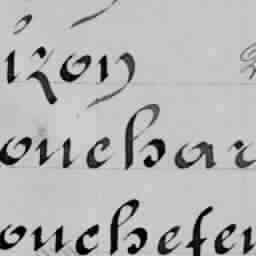 izon
ouchar
ouchefer